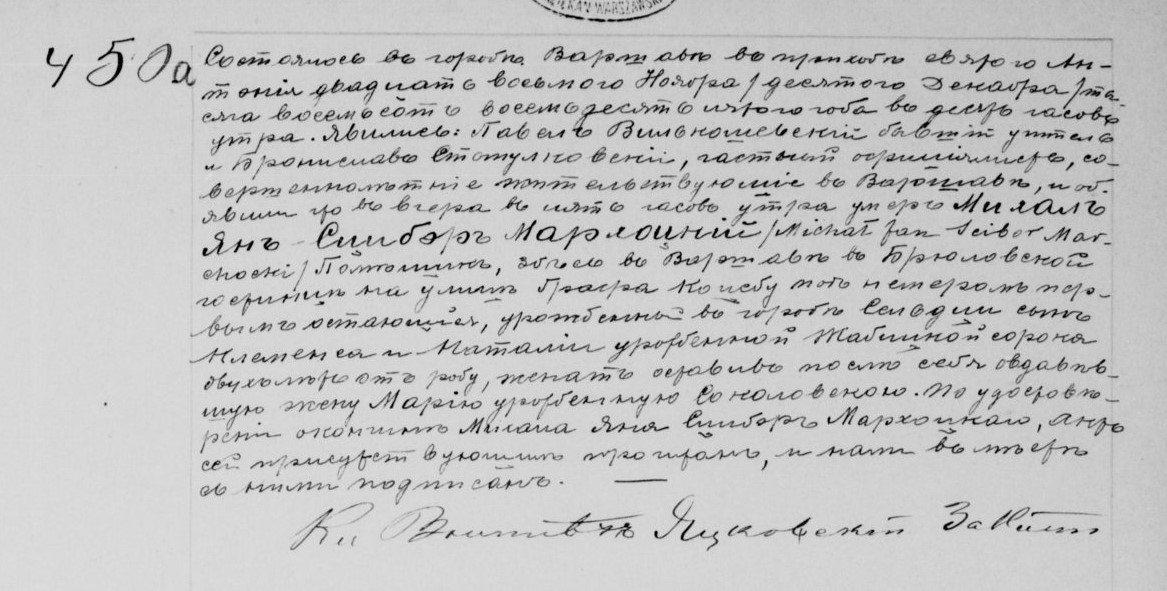 ДЗѢКАН WARSZAWSKI
450а
Состоялось въ городѣ Варшавѣ въ приходѣ святого Ан-
тонія двадцать восьмого Ноября / десятого Декабря / ты-
сяча восемьсотъ восемьдесятъ пятого года въ десять часовъ
утра. Явились: Павелъ Вильконшевскій бывшій учитель
и Брониславъ Статулковскій, частный оффиціялистъ, со-
вершеннолѣтніе жительствующіе въ Варшавѣ, и объ-
явили что вчера въ пять часовъ утра умеръ Михалъ
Янъ Сциборъ Мархоцкій / Michał Jan Ścibor Mar-
chocki / Помѣщикъ, здѣсь въ Варшавѣ въ Брюловской
гостинницѣ на улицѣ Графа Коцебу подъ нумеромъ пер-
вымъ остающійся, урожденный въ городѣ сынъ
Клеменса и Наталіи урожденной Жабицкой сорока
двухъ лѣтъ отъ роду, женатъ оставивъ послѣ себя овдовѣв-
шую жену Марію урожденную Соколовскою. По удостовѣ-
реніи о кончинѣ Михала Яна Сциборъ Мархоцкаго, Актъ
сей присутствующимъ прочитанъ, и нами вмѣстѣ
съ ними подписанъ. —
Яцковскій